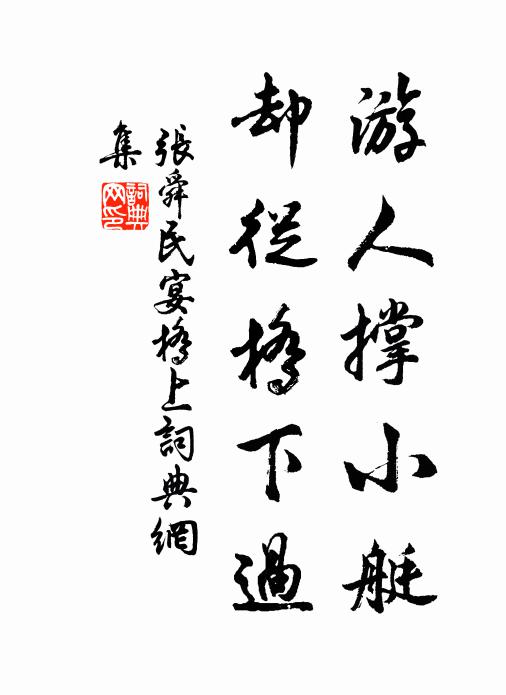 游人撑小艇
却從橋下過
張舜民宴橋上詞典網
集
詞典
网印